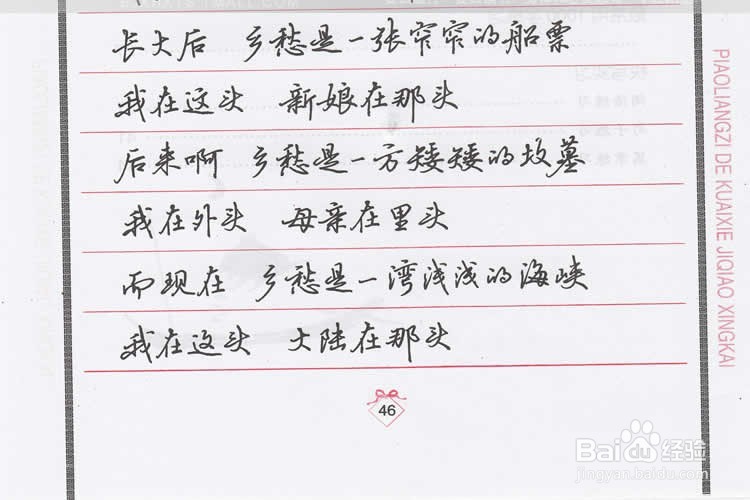 长大后 乡愁是一张窄窄的船票
我在这头 新娘在那头
后来啊 乡愁是一方矮矮的坟墓
我在外头 母亲在里头
而现在 乡愁是一湾浅浅的海峡
我在这头 大陆在那头
46
PIAOLIANGZI DE KUAIXIE JIQIAO XINGKAI
Baidu经验
jingyan.baidu.com